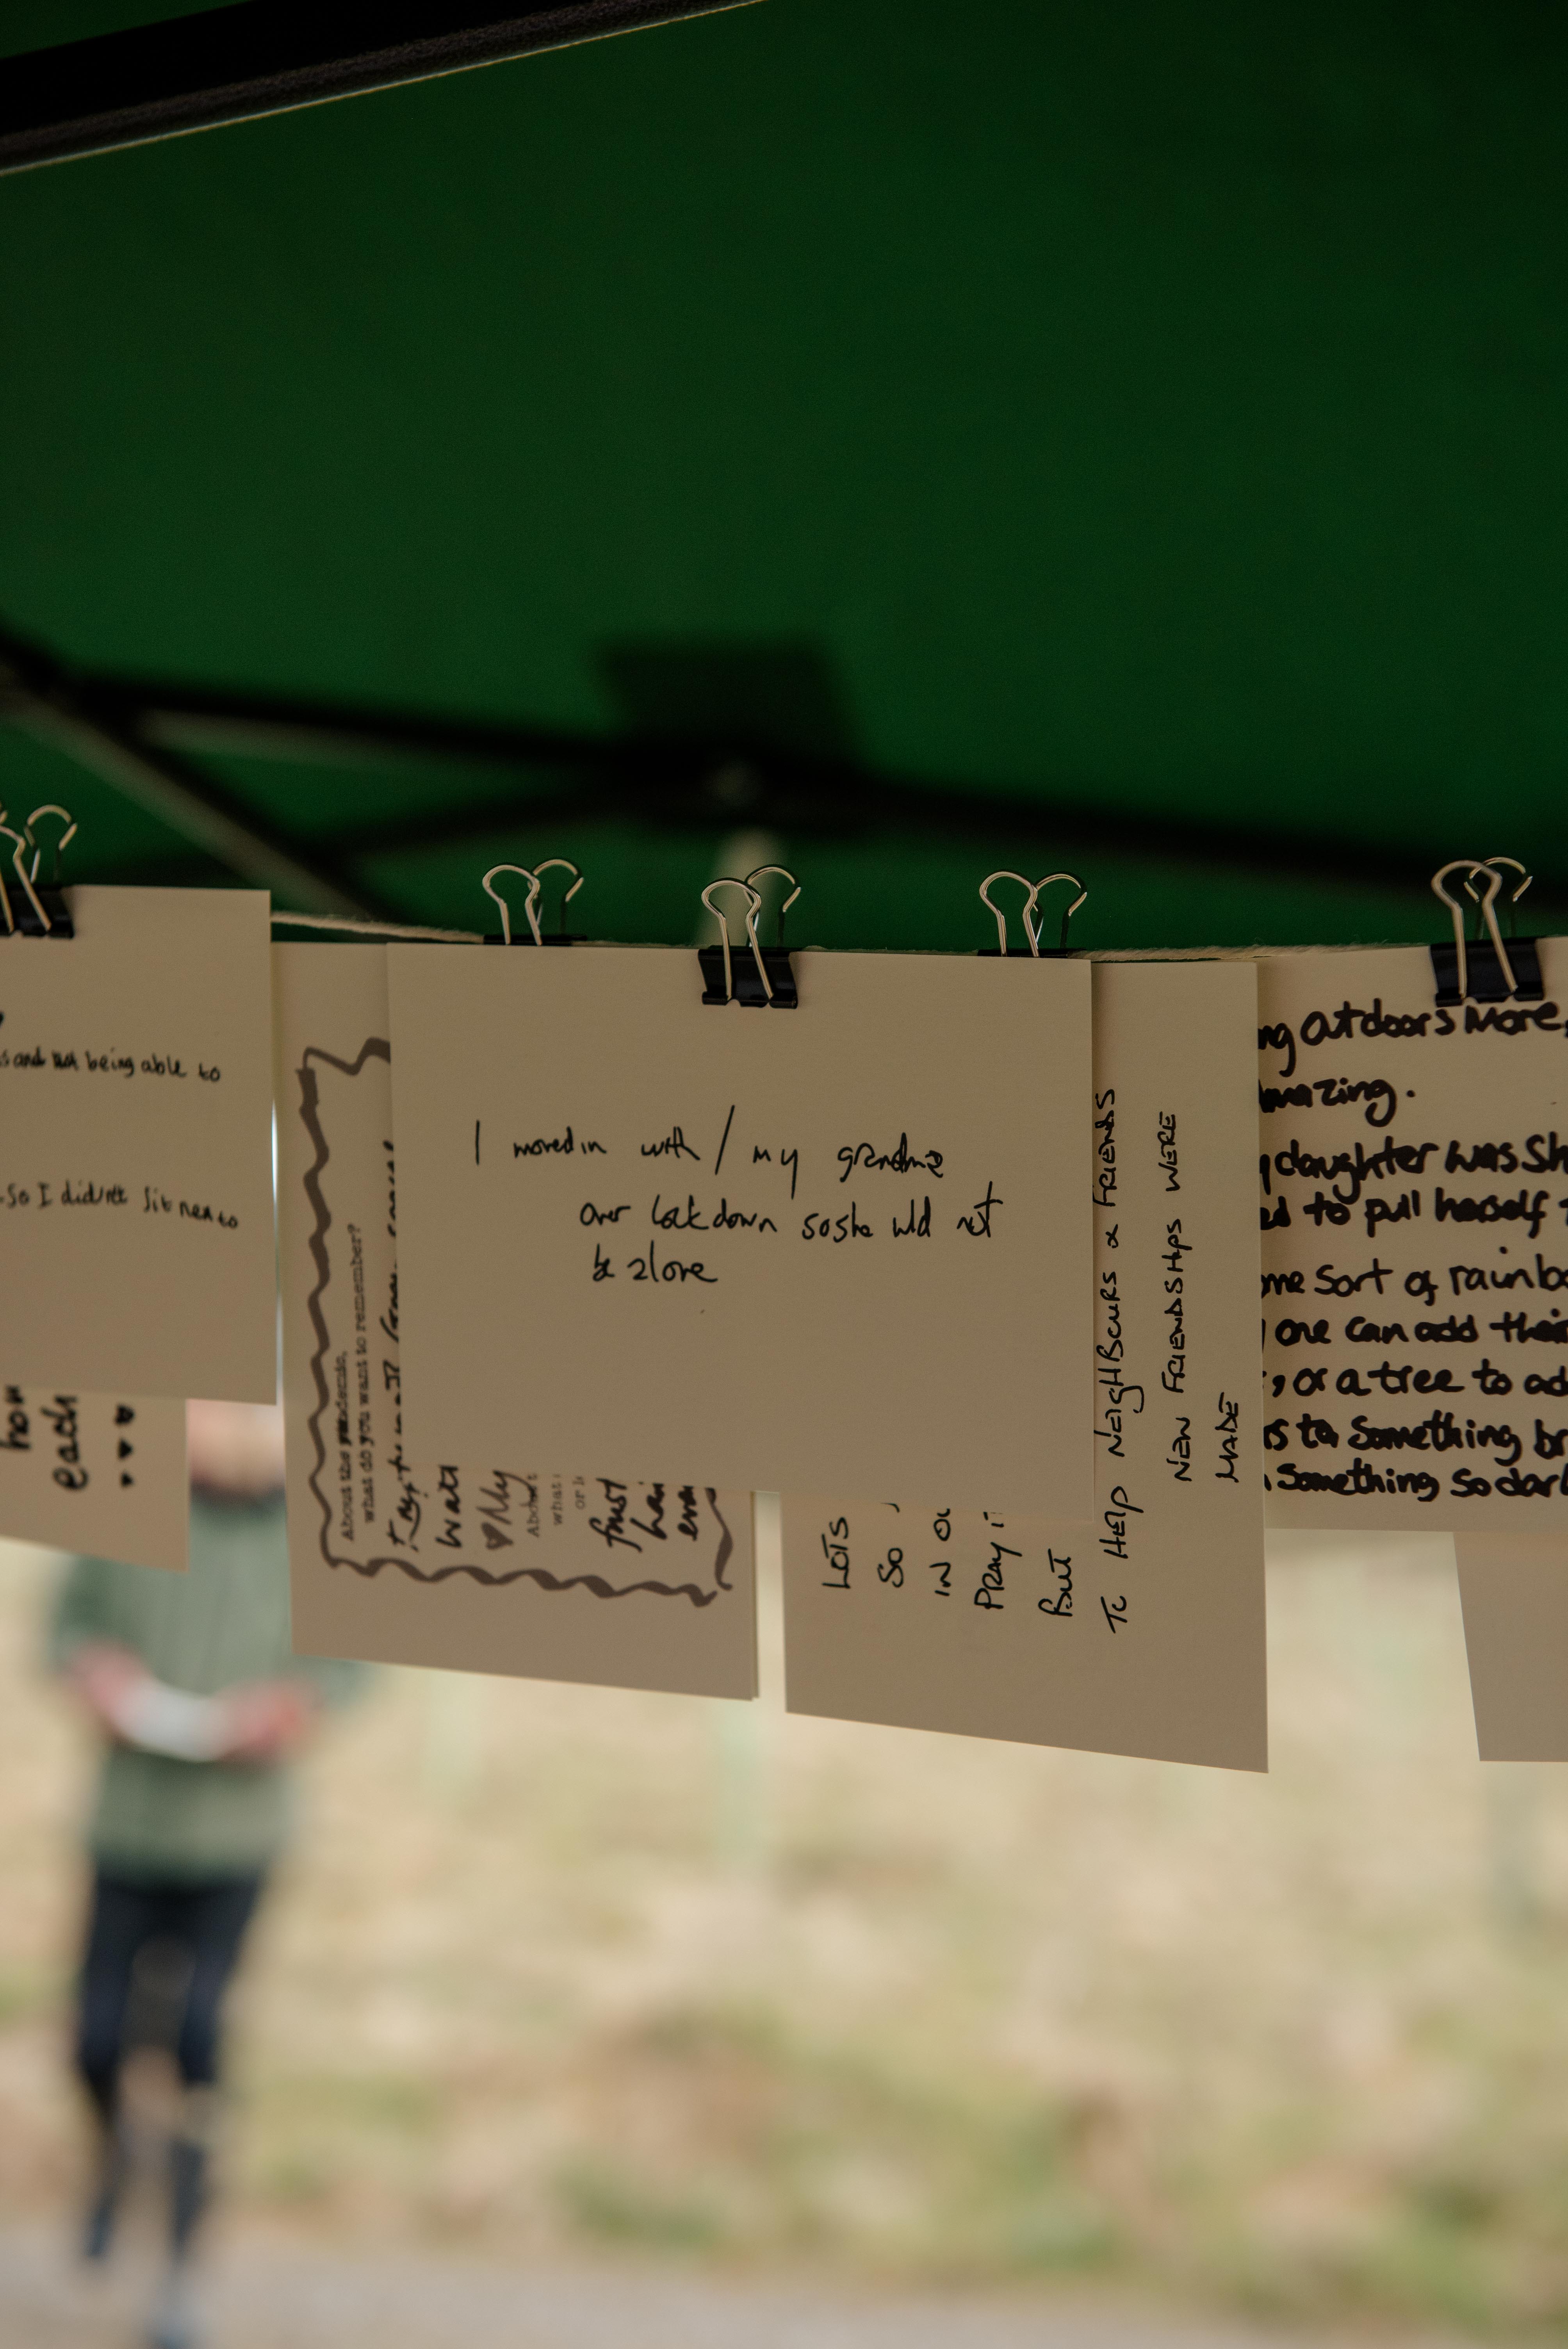 s and not being able to
so I didn't sit next to
how
each
About the pandemic,
what do you want to remember?
wat
My
About
what
or
just
hav
even
I moved in with / my grandma
over lockdown so she wld not
be alone
LOTS
SO
IN OU
PRAY
BUT
TO HELP NEIGHBOURS & FRIENDS
NEW FRIENDSHIPS WERE
MADE
ng outdoors more,
amazing.
daughter was sh
ed to pull herself t
me sort of rainbo
one can add their
, or a tree to ad
s to something br
something so dark